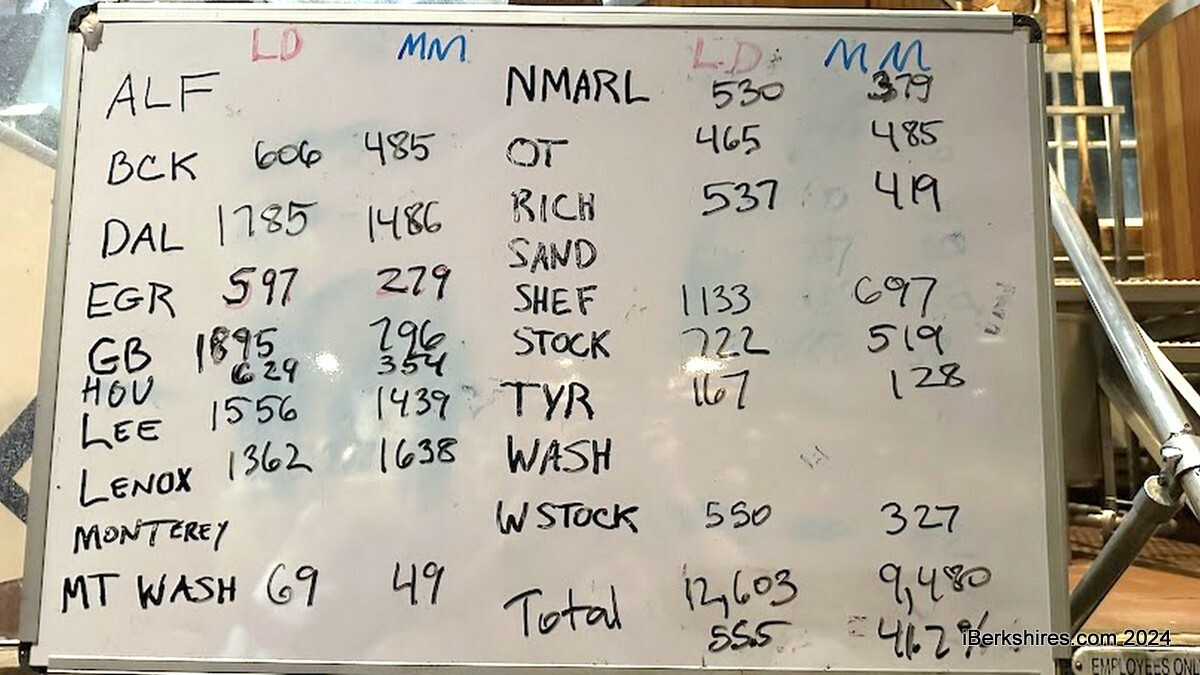 LD MM
ALF
BCK 606 485
DAL 1785 1486
EGR 597 279
GB 1895 796
HOU 629 354
LEE 1556 1439
LENOX 1362 1638
MONTEREY
MT WASH 69 49
LD MM
NMARL 530 379
OT 465 485
RICH 537 419
SAND
SHEF 1133 697
STOCK 722 519
TYR 167 128
WASH
W STOCK 550 327
Total 12,603 9,480
55.5 41.2%
iBerkshires.com 2024
EMPLOYEES ONLY